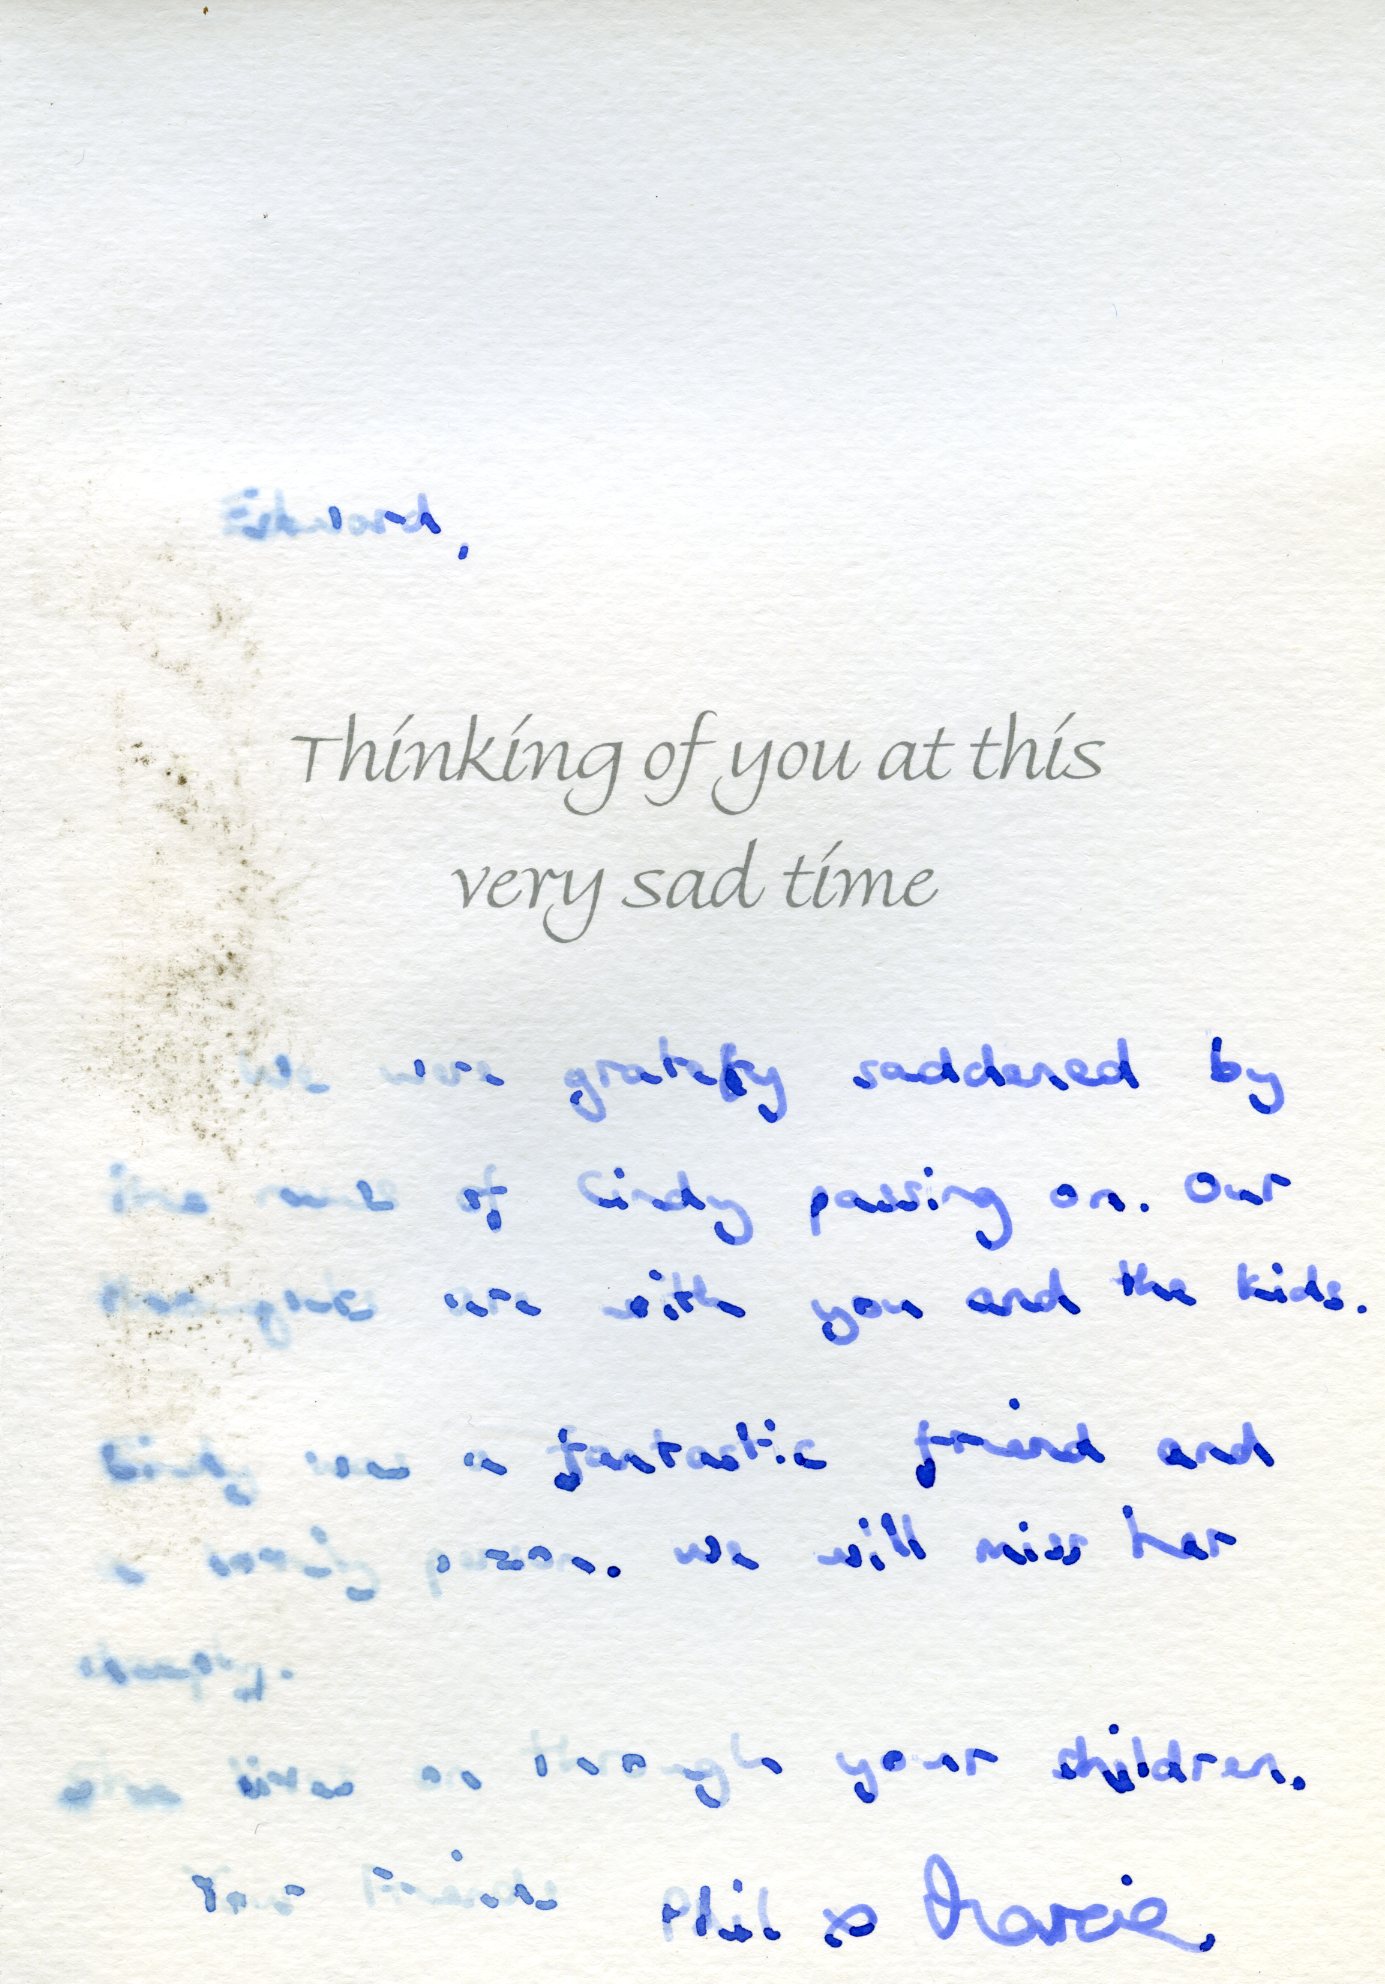 Edward,
Thinking of you at this
very sad time
We were gratefly saddened by
the news of Cindy passing on. Our
thoughts are with you and the kids.
Cindy was a fantastic friend and
a lovely person. We will miss her
deeply.
She lives on through your children.
Your Friends Phil & Marcie.